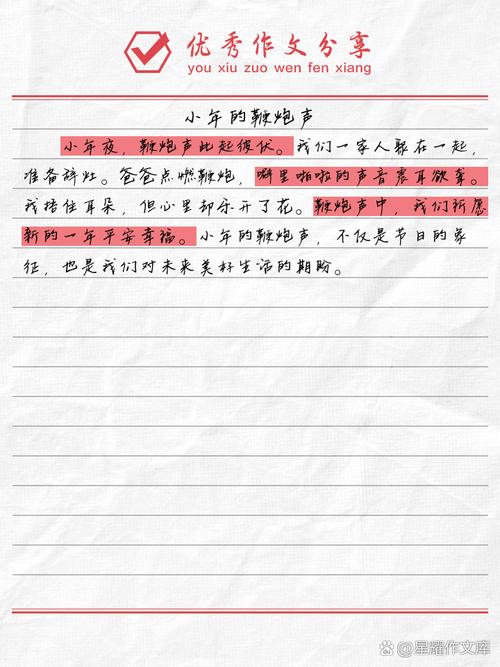 优秀作文分享
you xiu zuo wen fen xiang
小年的鞭炮声
小年夜，鞭炮声此起彼伏。我们一家人聚在一起，
准备辞灶。爸爸点燃鞭炮，噼里啪啦的声音震耳欲聋。
我捂住耳朵，但心里却乐开了花。鞭炮声中，我们祈愿
新的一年平安幸福。小年的鞭炮声，不仅是节日的象
征，也是我们对未来美好生活的期盼。
Bai百家号/星耀作文库